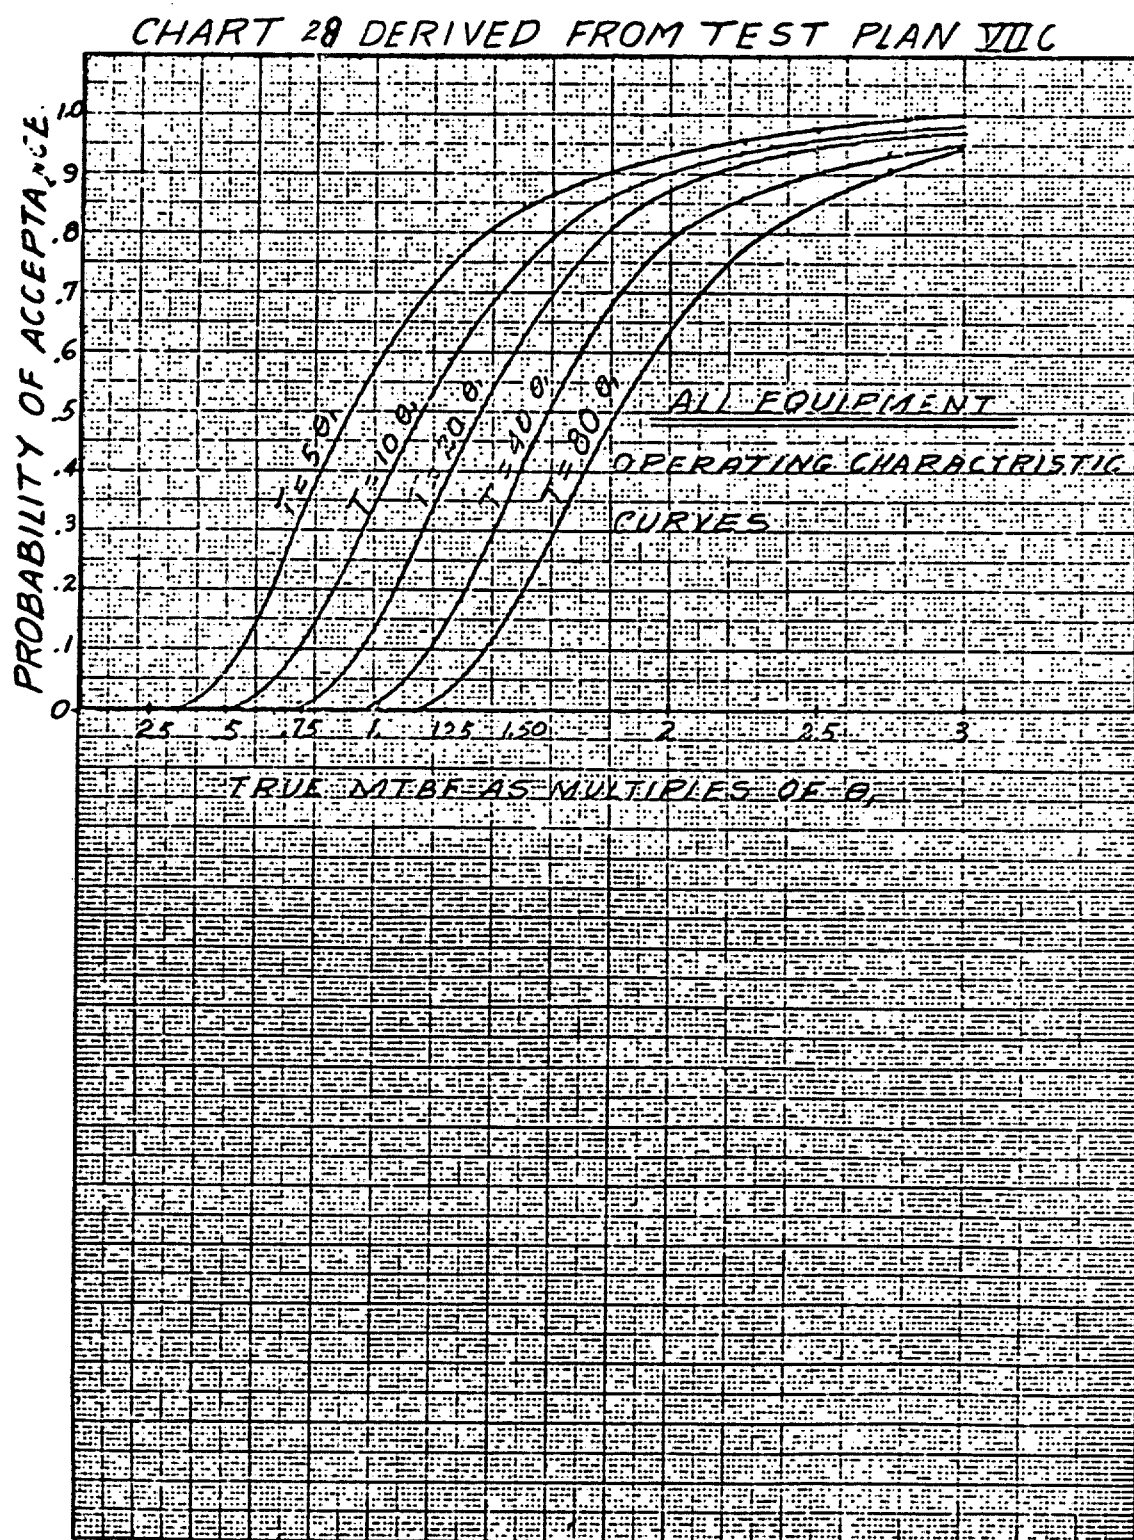 CHART 28 DERIVED FROM TEST PLAN VII C
PROBABILITY OF ACCEPTANCE
1.0
.9
.8
.7
.6
.5
.4
.3
.2
.1
0
T=5θ₁
T=10θ₁
T=20θ₁
T=40θ₁
T=80θ₁
ALL EQUIPMENT
OPERATING CHARACTRISTIC
CURVES
.25 .5 .75 1. 1.25 1.50 2 2.5 3
TRUE MTBF AS MULTIPLES OF θ₁